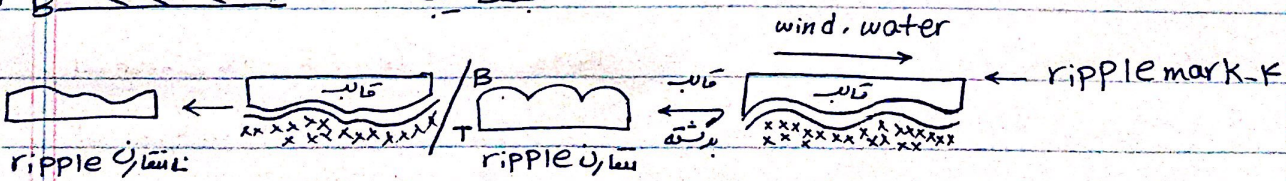 B
wind, water
ripple mark -۴
قالب
قالب
برگشته
B
T
قالب
متقارن ripple
نامتقارن ripple